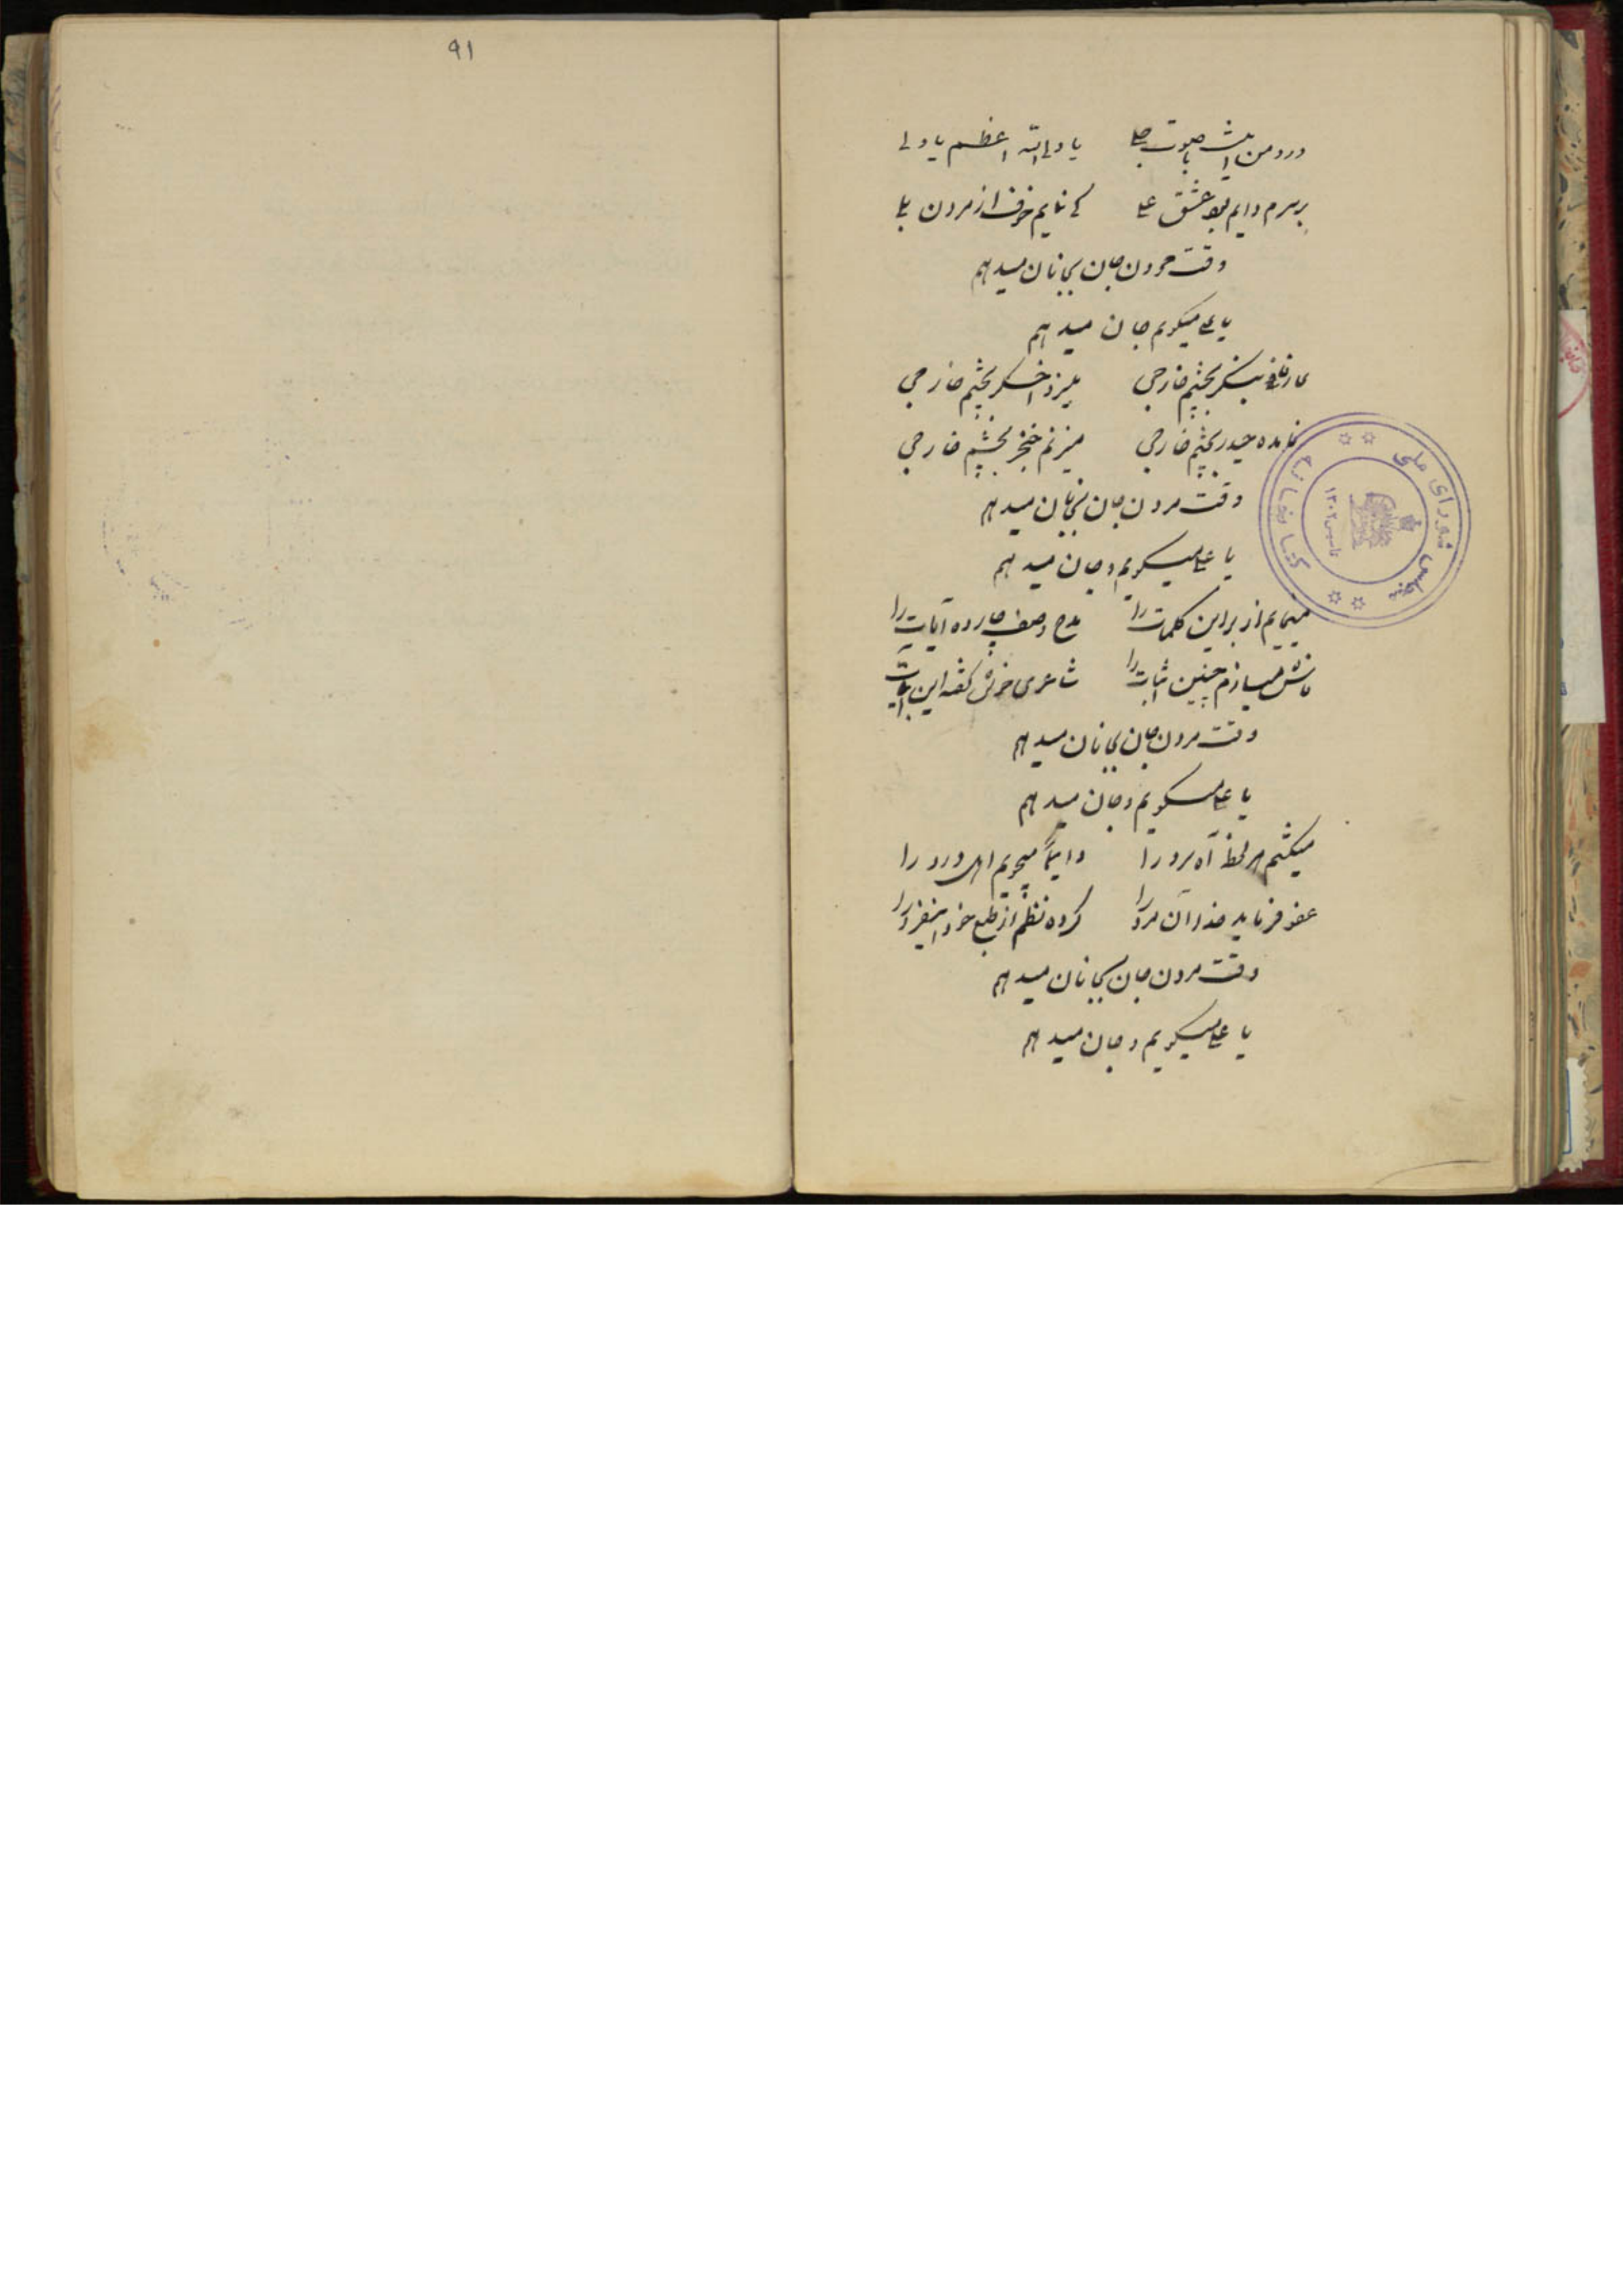 ۹۱
ورد من اینست با صوت جلی یا ولی الله اعظم یا ولی
بر سرم دایم بود عشق علی کی نمایم خوف از مردن بلی
وقت مردن جان بجانان میدهم
یا علی میگویم جان میدهم
بنگر بچشم خارجی بریزد اخگر بچشم خارجی
حیدر بچشم خارجی میزنم خنجر بچشم خارجی
وقت مردن جان بجانان میدهم
یا علی میگویم و جان میدهم
مینمایم از بر این کلمات را مدح وصف چارده آیات را
فاش میسازم چنین اثبات را شاعری خوش گفته این ابیات
وقت مردن جان بجانان میدهم
یا علی میگویم و جان میدهم
میکشم هر لحظه آه سرد را دایماً میجویم اهل درد را
عفو فرماید خدا آن مرد را کرده نظم از طبع خود اینفرد را
وقت مردن جان بجانان میدهم
یا علی میگویم و جان میدهم
کتابخانه مجلس شورای ملی
تاسیس ۱۳۰۲